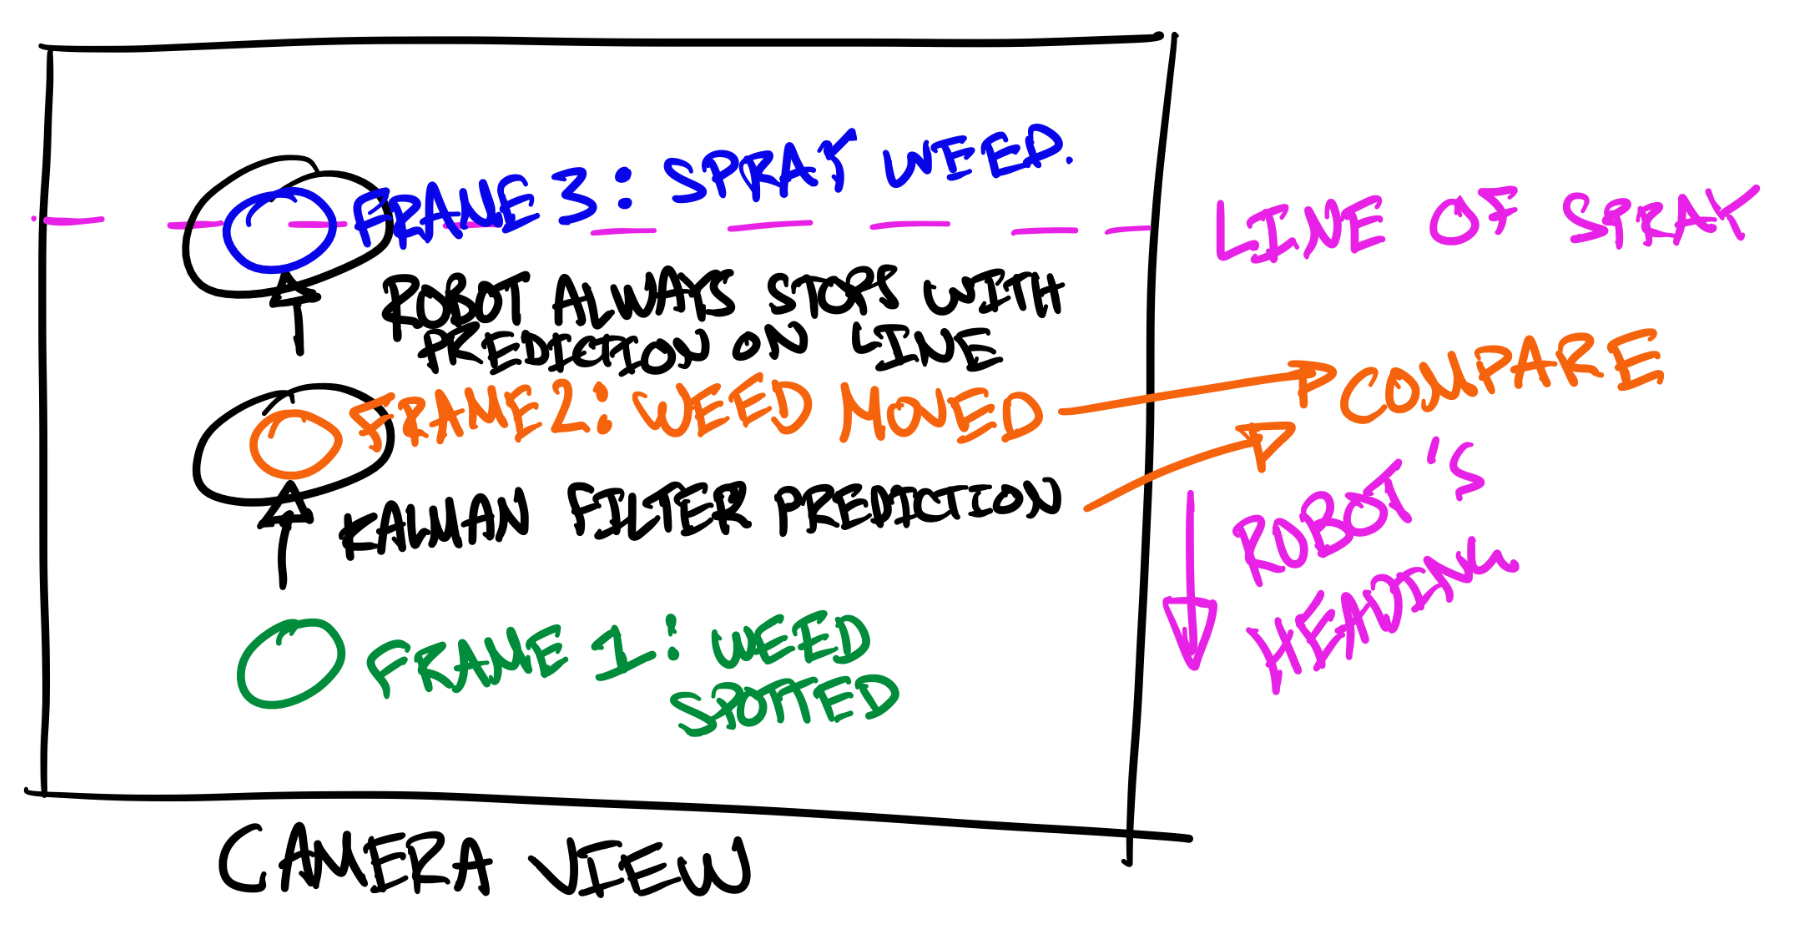 FRAME 3: SPRAY WEED.
LINE OF SPRAY
ROBOT ALWAYS STOPS WITH
PREDICTION ON LINE
FRAME 2: WEED MOVED
COMPARE
KALMAN FILTER PREDICTION
ROBOT'S
HEADING
FRAME 1: WEED
SPOTTED
CAMERA VIEW